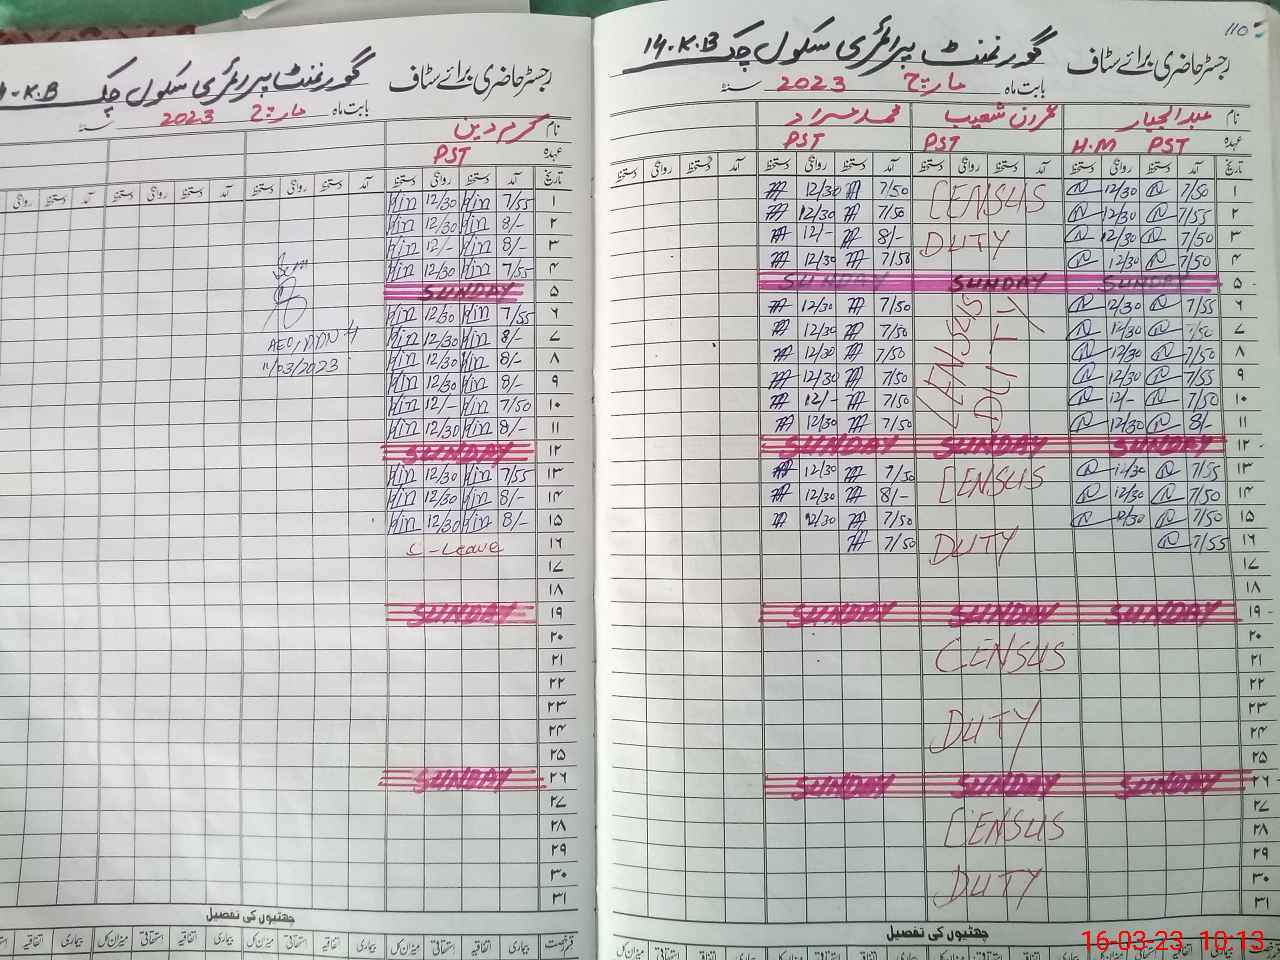 110
رجسٹر حاضری برائے سٹاف گورنمنٹ پرائمری سکول چک 14.K.B
بابت ماہ مارچ 2023 سنہ
نام عبدالجبار عمران شعیب محمد مراد
عہدہ PST H.M PST PST
تاریخ آمد دستخط روانگی دستخط آمد دستخط روانگی دستخط آمد دستخط روانگی دستخط آمد دستخط روانگی دستخط
۱ 7/50 12/30 7/50 12/30
CENSUS
۲ 7/55 12/30 7/50 12/30
۳ 7/50 12/30 8/- 12/-
DUTY
۴ 7/50 12/30 7/50 12/30
۵ SUNDAY SUNDAY SUNDAY
۶ 7/55 12/30 7/50 12/30
CENSUS DUTY
۷ 7/50 12/30 7/50 12/30
۸ 7/50 12/30 7/50 12/30
۹ 7/55 12/30 7/50 12/30
۱۰ 7/50 12/- 7/50 12/-
۱۱ 8/- 12/30 7/50 12/30
۱۲ SUNDAY SUNDAY SUNDAY
۱۳ 7/55 12/30 CENSUS 7/50 12/30
۱۴ 7/50 12/30 8/- 12/30
۱۵ 7/50 12/30 7/50 12/30
۱۶ 7/55 DUTY 7/50
۱۷
۱۸
۱۹ SUNDAY SUNDAY SUNDAY
۲۰
CENSUS
۲۱
۲۲
۲۳
DUTY
۲۴
۲۵
۲۶ SUNDAY SUNDAY SUNDAY
۲۷
CENSUS
۲۸
۲۹
۳۰ DUTY
۳۱
چھٹیوں کی تفصیل
رجسٹر حاضری برائے سٹاف گورنمنٹ پرائمری سکول چک K.B
بابت ماہ مارچ 2023 سنہ
نام کرم دین
عہدہ PST
تاریخ آمد دستخط روانگی دستخط آمد دستخط روانگی دستخط آمد دستخط روانگی دستخط آمد دستخط روانگی
۱ 7/55 12/30
۲ 8/- 12/30
۳ 8/- 12/-
۴ 7/55 12/30
۵ SUNDAY
۶ 7/55 12/30
۷ 8/- 12/30
AEO
۸ 8/- 12/30
11/03/2023
۹ 8/- 12/30
۱۰ 7/50 12/-
۱۱ 8/- 12/30
۱۲ SUNDAY
۱۳ 7/55 12/30
۱۴ 8/- 12/30
۱۵ 8/- 12/30
۱۶ C-Leave
۱۷
۱۸
۱۹ SUNDAY
۲۰
۲۱
۲۲
۲۳
۲۴
۲۵
۲۶ SUNDAY
۲۷
۲۸
۲۹
۳۰
۳۱
چھٹیوں کی تفصیل
قسم رخصت بیماری اتفاقیہ استحقاقی میزان کل بیماری اتفاقیہ استحقاقی میزان کل بیماری اتفاقیہ استحقاقی میزان کل بیماری اتفاقیہ
16-03-23 10:13